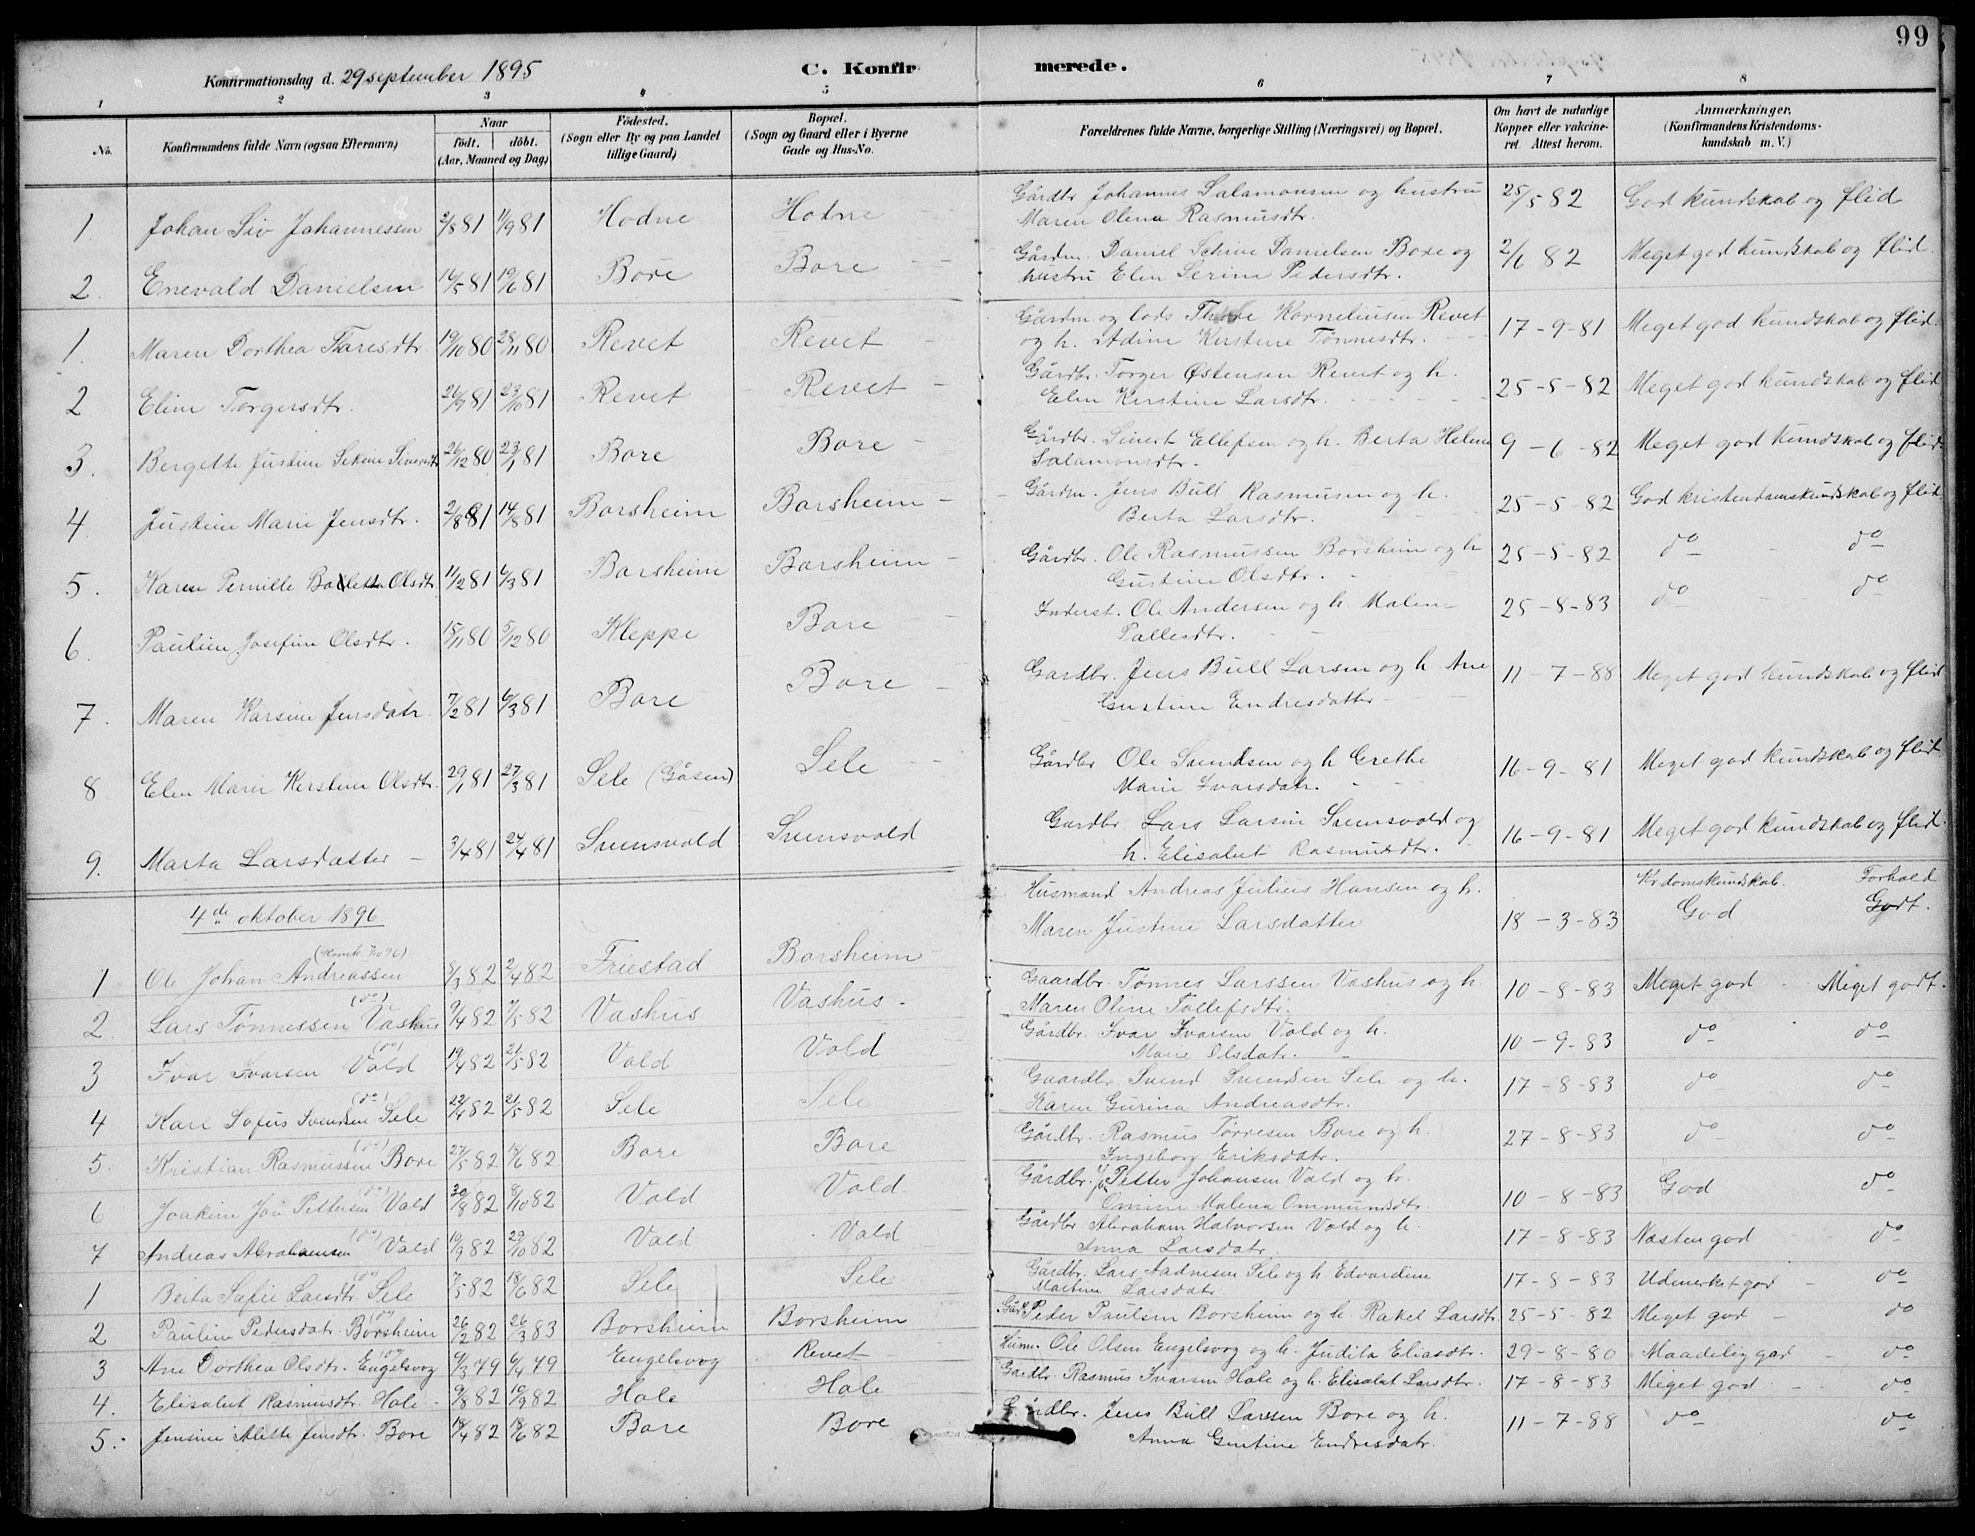 99
Konfirmationsdag d. 29 september 1895 C. Konfirmerede.
1 2 3 4 5 6 7 8
No. Konfirmandens fulde Navn (ogsaa Efternavn) Naar födt. döbt. (Aar, Maaned og Dag) Födested. (Sogn eller By og paa Landet tillige Gaard) Bopæl. (Sogn og Gaard eller i Byerne Gade og Hus-No. Forældrenes fulde Navne, borgerlige Stilling (Næringsvei) og Bopæl. Om havt de naturlige Kopper eller vakcineret. Attest herom. Anmærkninger. (Konfirmandens Kristendomskundskab m. V.)
1. Johan Siv Johannessen 2/8 81 11/9 81 Hodne Hodne Gårdbr Johannes Salamonsen og hustru Maren Olena Rasmusdtr. 25/5 82 God kundskab og flid
2. Enevald Danielsen 16/5 81 19/6 81 Bore Bore Gårdm. Daniel Danielsen Bore og hustru Elen Serine Pedersdtr. 2/6 82 Meget god kundskab og flid.
1. Maren Dorthea Taresdtr. 19/10 80 28/11 80 Revet Revet Gårdm og lods Korneliusen Revet og h. Adine Kirstine Tønnesdtr. 17-9-81 Meget god kundskab og flid.
2 Eline Torgersdtr. 26/9 81 23/10 81 Revet Revet Gårdbr. Torger Østensen Revet og h. Elen Kirstine Larsdtr. 25-5-82 Meget god kundskab og flid
3. Bergette Justine Sivertsdtr 26/12 80 23/1 81 Bore Bore Gårdbr. Sivert Ellefsen og h. Berta Helene Salamonsdtr. 9-6-82 Meget god kundskab og flid.
4. Justine Marie Jensdtr. 2/8 81 14/8 81 Borsheim Borsheim Gårdm. Jens Bull Rasmusen og h. Berta Larsdtr. 25-5-82 God kristendomskundskab og flid
5. Karen Pernille Olsdtr. 11/2 81 6/3 81 Borsheim Borsheim Gårdbr. Ole Rasmussen Borsheim og h Gustine Olsdtr. 25-5-82 do do
6. Pauline Josefine Olsdtr. 15/11 80 5/12 80 Kleppe Bore Inderst. Ole Andersen og h. Malene Pallesdtr. 25-8-83 do do
7. Maren Karsine Jensdatr. 7/2 81 6/3 81 Bore Bore Gardbr. Jens Bull Larsen og h. Ane Gustine Endresdatter 11-7-88 Meget god kundskab og flid
8 Elen Marie Kirstine Olsdtr. 29/1 81 27/3 81 Sele (Gåsen) Sele Gårdbr Ole Svendsen og h Grethe Marie Ivarsdatr. 16-9-81 Meget god kundskab og flid.
9. Marta Larsdatter 3/4 81 24/4 81 Svensvold Svensvold Gardbr Lars Larsen Svensvold og h. Elisabet Rasmusdtr. 16-9-81 Meget god kundskab og flid.
4de oktober 1896 Kr domskundskab. Forhold
1 Ole Johan Andreassen 8/3 82 2/4 82 Friestad Borsheim Husmand Andreas Julius Hansen og h. Maren Justine Larsdatter 18-3-83 God Godt.
2. Lars Tønnessen Vashus (do) 9/4 82 7/5 82 Vashus Vashus Gaardbr. Tønnes Larssen Vashus og h Maren Oline Tollefsdtr. 10-8-83 Meget god Meget godt.
3 Ivar Ivarsen Vold (do) 19/4 82 21/5 82 Vold Vold Gårdbr. Ivar Ivarsen Vold og h. Marie Olsdatr. 10-9-83 do do
4 Karl Sofus Svendsen Sele (do) 23/4 82 21/5 82 Sele Sele Gaardbr. Svend Svendsen Sele og h. Karen Gurina Andreasdtr. 17-8-83 do do
5. Kristian Rasmussen Bore (do) 27/5 82 18/6 82 Bore Bore Gårdbr. Rasmus Torresen Bore og h. Ingeborg Eriksdatr. 27-8-83 do do
6 Joakim Pettersen Vold (do) 30/8 82 8/10 82 Vold Vold Gårdbr. Petter Johansen Vold og h. Omine Malena Ommundsdtr. 10-8-83 God do
7 Andreas Abrahamsen Vold (do) 10/9 82 29/10 82 Vold Vold Gårdbr. Abraham Halvorsen Vold og h. Anna Larsdatr. 17-8-83 Næsten god do
1 Berta Sofie Larsdtr. Sele (do) 7/5 82 18/6 82 Sele Sele Gårdbr. Lars Aadnesen Sele og h. Edvardine Martine Larsdatr. 17-8-83 Udmerket god do
2 Pauline Pedersdatr. Borsheim (do) 26/2 82 26/3 83 Borsheim Borsheim Gårdb Peder Paulsen Borsheim og h. Rakel Larsdtr. 25-5-82 Meget god do
3 Ane Dorthea Olsdtr. Engelsvog (do) 6/3 79 6/4 79 Engelsvog Revet Husm. Ole Olsen Engelsvog og h. Judita Eliasdtr. 29-8-80 Maadelig god do
4. Elisabet Rasmusdtr. Hole 9/8 82 10/9 82 Hole Hole Gardbr. Rasmus Ivarsen Hole og h. Elisabet Larsdtr. 17-8-83 Meget god do
5. Jensine Alette Jensdtr. Bore 18/4 82 18/6 82 Bore Bore Gårdbr. Jens Bull Larssen Bore og h. Anna Gustine Endresdatr. 11-7-88 do do